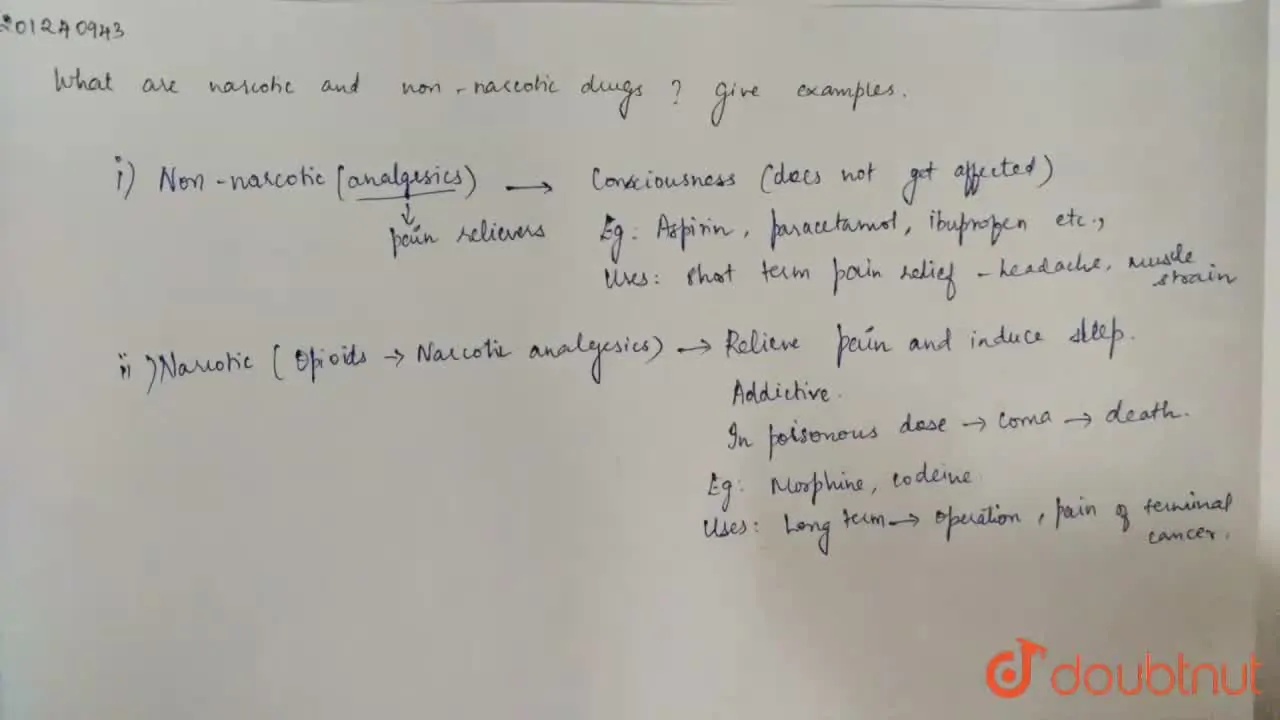 201240943
What are narcotic and non-narcotic drugs ? Give examples.
i) Non-narcotic (analgesics) → Consciousness (does not get affected)
↓
pain relievers
Eg: Aspirin, paracetamol, ibuprofen etc.,
Uses: short term pain relief - headache, muscle strain
ii) Narcotic (Opioids → Narcotic analgesics) → Relieve pain and induce sleep.
Addictive.
In poisonous dose → coma → death.
Eg: Morphine, codeine
Uses: Long term → operation, pain of terminal cancer.
doubtnut